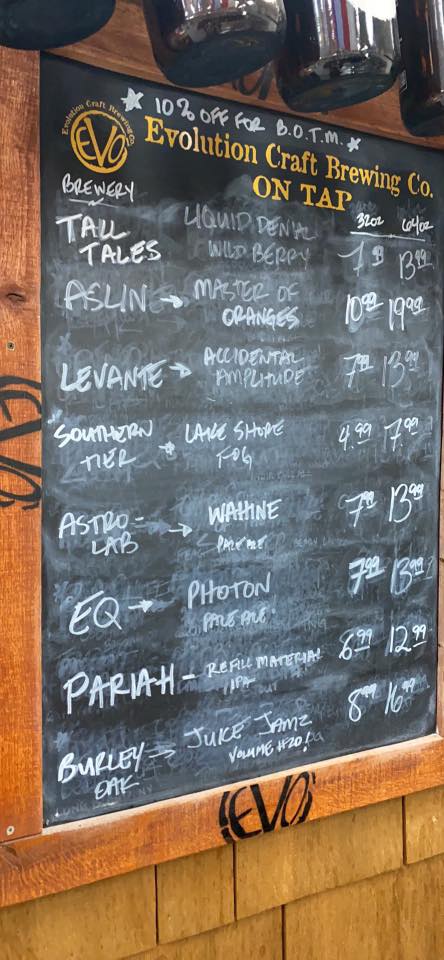 ★ 10% OFF FOR B.O.T.M. ★
Evolution Craft Brewing Co.
EVO
Evolution Craft Brewing Co.
ON TAP
BREWERY 32oz 64oz
TALL LIQUID DENIAL
TALES WILD BERRY 7.99 13.99
ASLIN → MASTER OF 10.99 19.99
ORANGES
LEVANTE → ACCIDENTAL 7.99 13.99
AMPLITUDE
SOUTHERN → LAKE SHORE 4.99 7.99
TIER FOG
ASTRO- → WAHINE 7.99 13.99
LAB PALE ALE
EQ → PHOTON 7.99 13.99
PALE ALE
PARIAH - REFILL MATERIAL 6.99 12.99
IPA
BURLEY → JUICE JAMZ 8.99 16.99
OAK VOLUME #20!
(EVO)
(EVO)